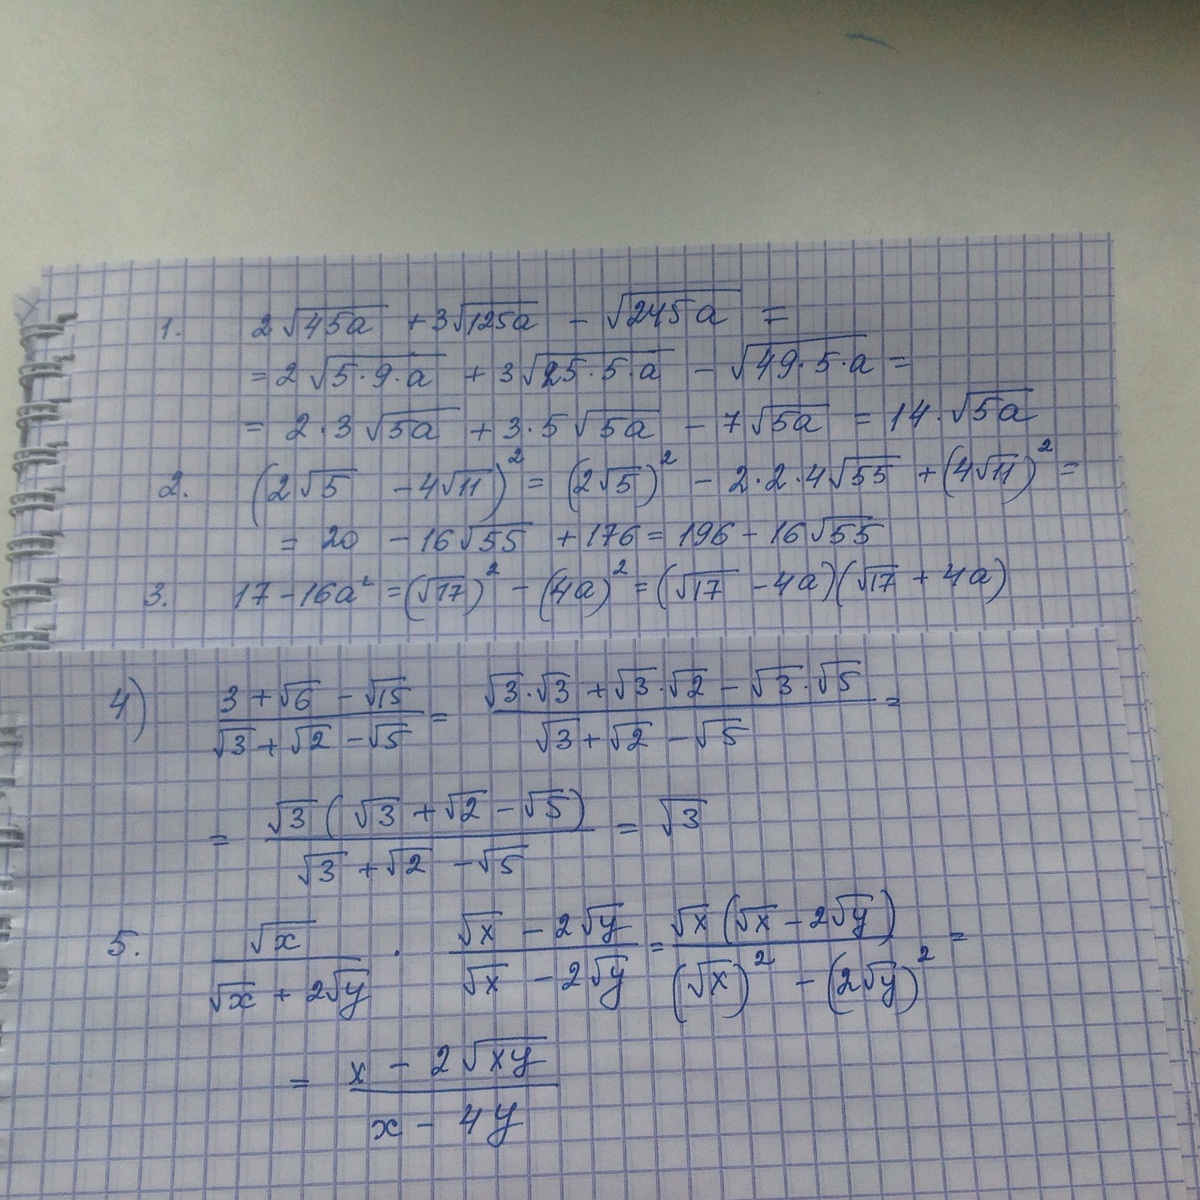 1. 2√45a + 3√125a - √245a =
= 2√5·9·a + 3√25·5·a - √49·5·a =
= 2·3√5a + 3·5√5a - 7√5a = 14·√5a
2. (2√5 - 4√11)² = (2√5)² - 2·2·4√55 + (4√11)² =
= 20 - 16√55 + 176 = 196 - 16√55
3. 17 - 16a² = (√17)² - (4a)² = (√17 - 4a)(√17 + 4a)
4) (3 + √6 - √15)/(√3 + √2 - √5) = (√3·√3 + √3·√2 - √3·√5)/(√3 + √2 - √5) =
= (√3(√3 + √2 - √5))/(√3 + √2 - √5) = √3
5. √x/(√x + 2√y) · (√x - 2√y)/(√x - 2√y) = (√x(√x - 2√y))/((√x)² - (2√y)²) =
= (x - 2√xy)/(x - 4y)